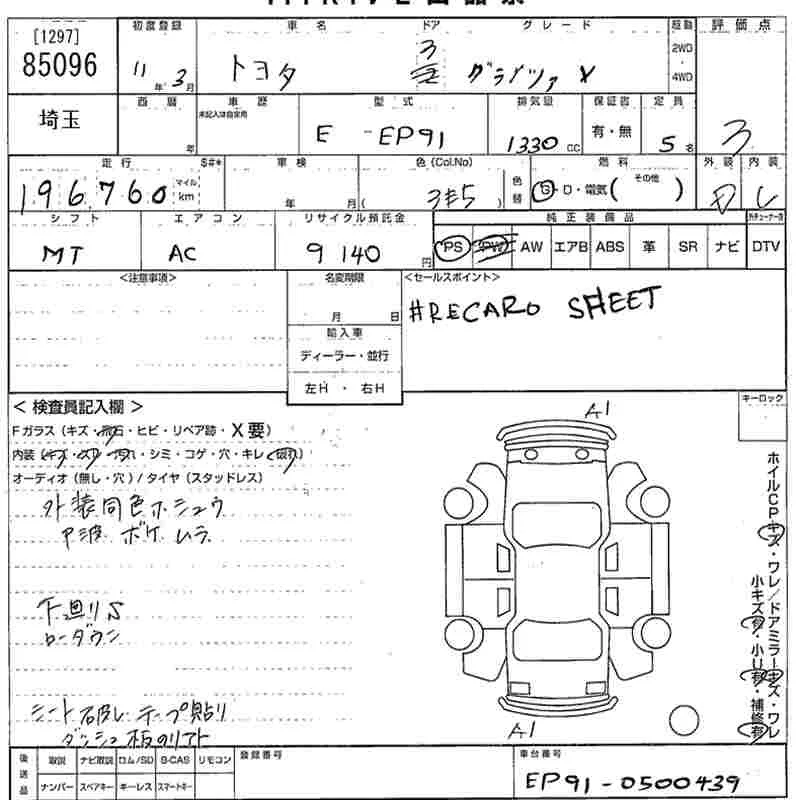 [1297]
85096
埼玉
初度登録
11年 3月
車名
トヨタ
ドア
3
グレード
グランツァ V
駆動
2WD
・
4WD
評価点
3
西暦
年
車歴
未記入は自家用
型式
E - EP91
排気量
1330 cc
保証書
有・無
定員
5名
走行 $#*
196,760 マイル km
車検
年 月
色(Col.No)
( 3E5 )
色替
燃料
G・D・電気( その他 )
外装
D
内装
シフト
MT
エアコン
AC
リサイクル預託金
9140円
純正装備品
PS PW AW エアB ABS 革 SR ナビ DTV
<注意事項>
名変期限
月 日
輸入車
ディーラー・並行
左H ・ 右H
<セールスポイント>
#RECARO SHEET
< 検査員記入欄 >
キーロック
A1
Fガラス(キズ・飛石・ヒビ・リペア跡・X要)
内装(キズ・スレ・汚れ・シミ・コゲ・穴・キレ・破れ)
オーディオ(無し・穴)/タイヤ(スタッドレス)
外装同色ホシュウ
P波 ボケ ムラ
下廻りS
ローダウン
シート破レ テープ貼リ
ダッシュ板のリフト
A1
ホイルCPキズ・ワレ/ドアミラーキズ・ワレ
小キズ有・小U有・補修有
後送品
取説 ナビ取説 ロム/SD B-CAS リモコン
ナンバー スペアキー キーレス スマートキー
登録番号
車台番号
EP91-0500439